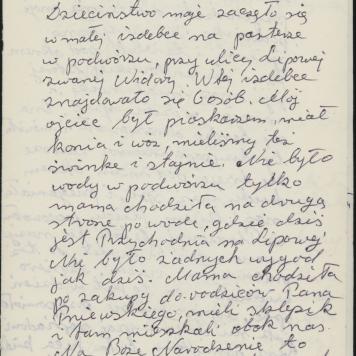 Dzieciństwo moje zaczęło się
w małej izdebce na parterze
w podwórzu, przy ulicy Lipowej
zwanej Widory. W tej izdebce
znajdowało się 6 osób. Mój
ojciec był piaskarzem, miał
konia i wóz, mieliśmy też
świnke i stajnie. Nie było
wody w podwórzu tylko
mama chodziła na drugą
strone po wodę, gdzie dziś
jest Przychodnia na Lipowej
Nie było żadnych wygod
jak dziś. Mama chodziła
po zakupy do rodziców Pana
Pniewskiego, mieli sklepik
i tam mieszkali obok nas.
Na Boże Narodzenie to